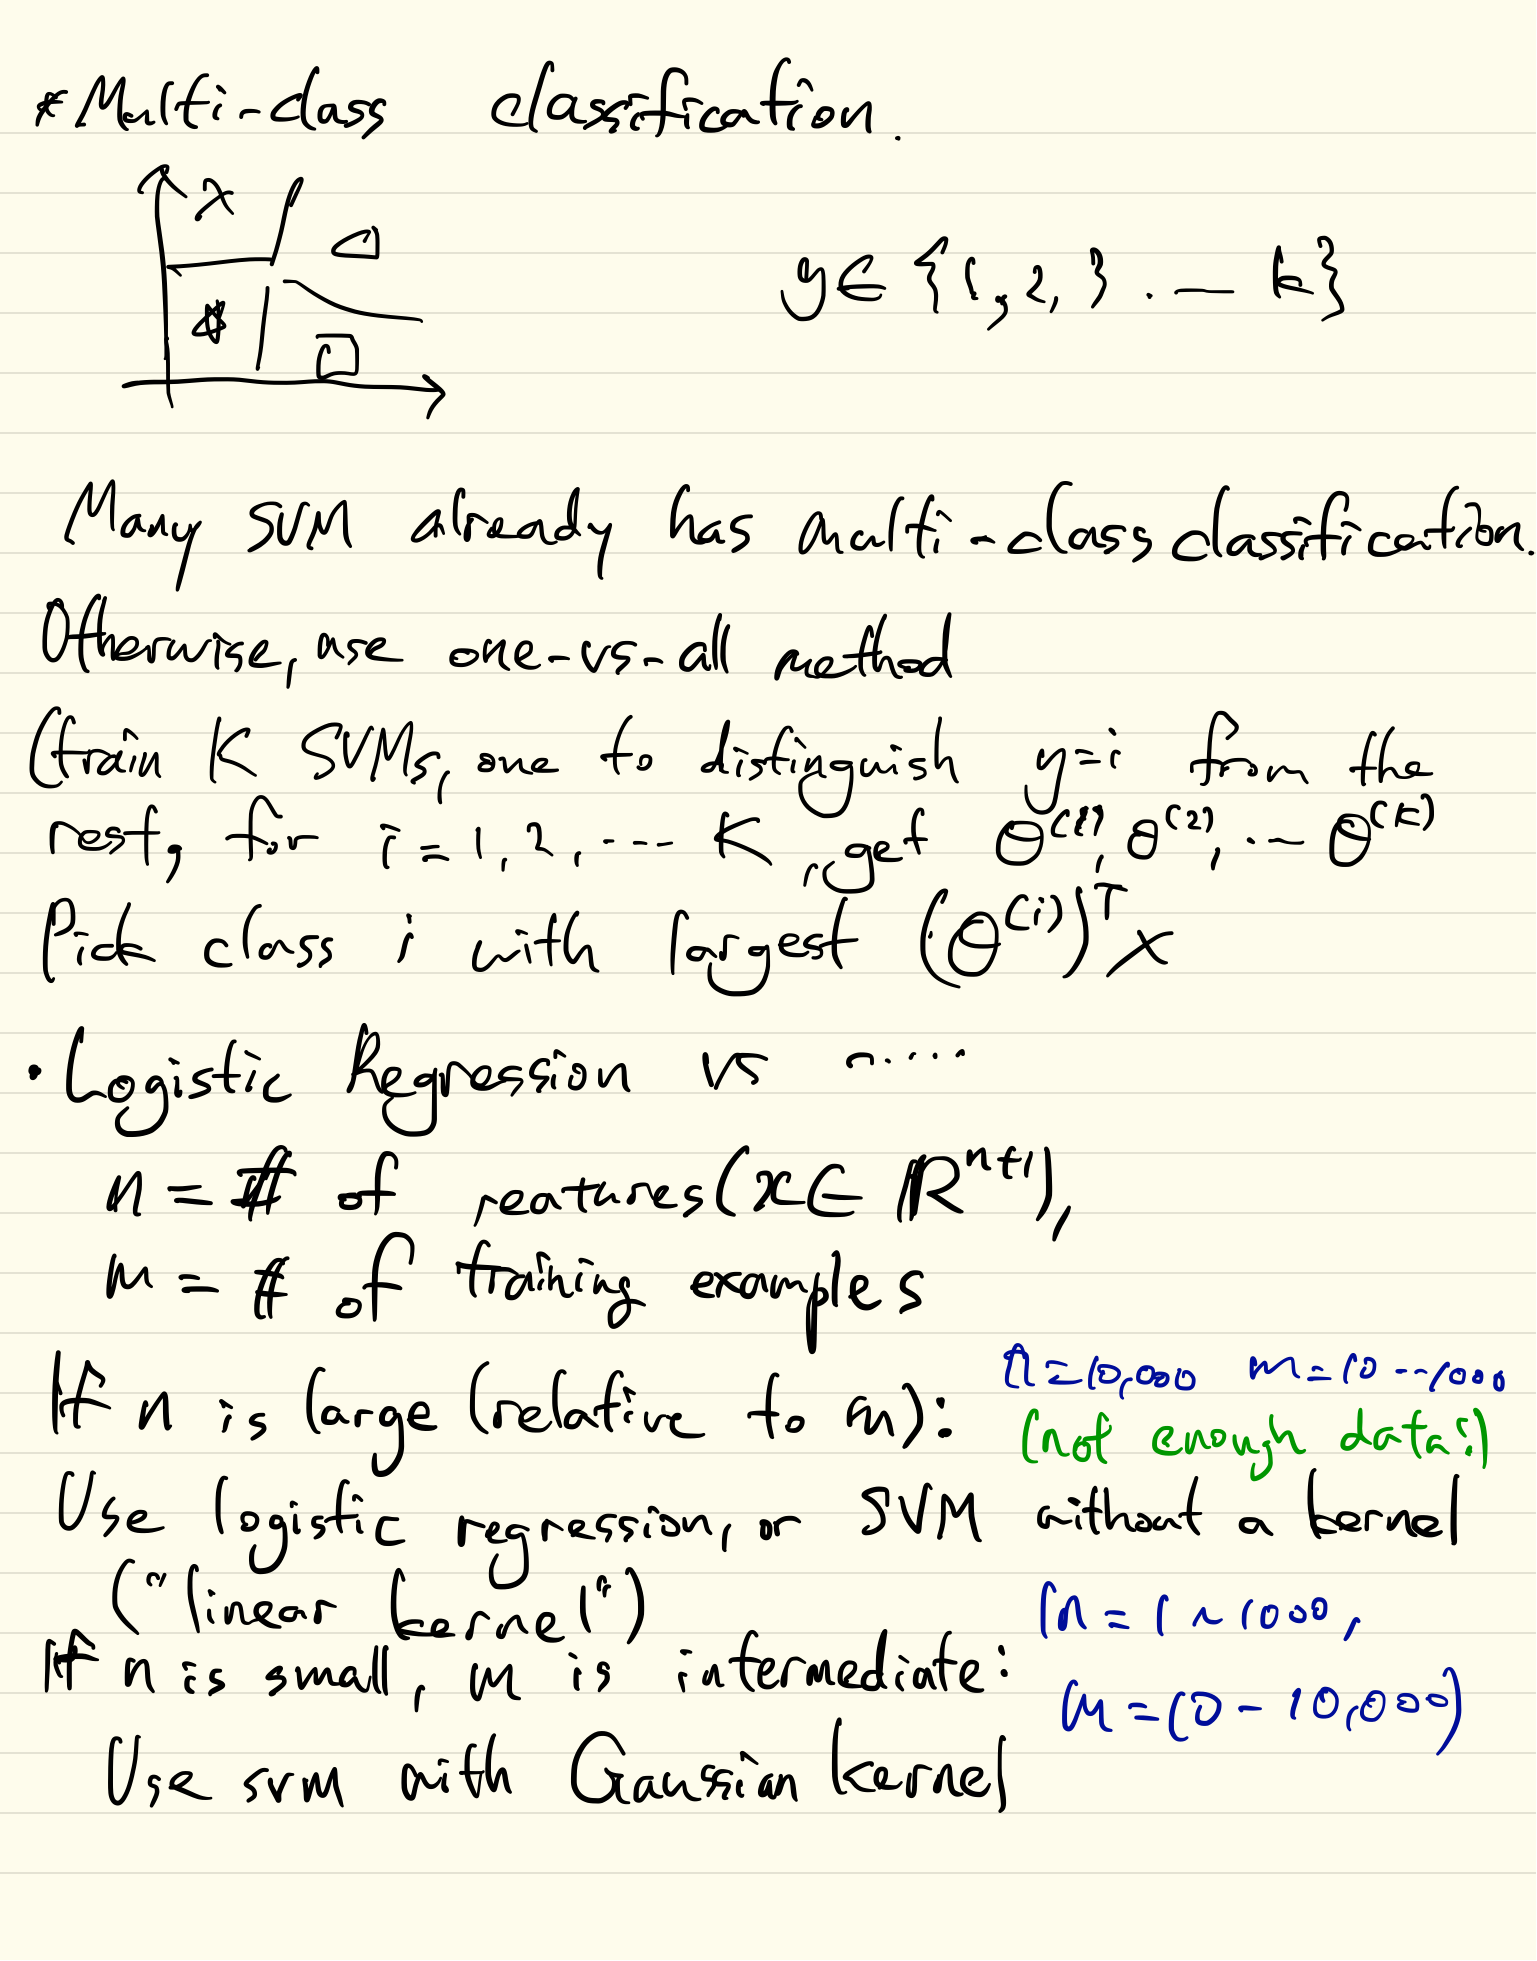 * Multi-class classification.
y ∈ {1, 2, 3 . — k}
Many SVM already has multi-class classification.
Otherwise, use one-vs-all method
(train K SVMs, one to distinguish y=i from the
rest, for i = 1, 2, ... K, get θ^(1), θ^(2), ... θ^(K)
Pick class i with largest (θ^(i))^T x
• Logistic Regression vs .....
n = # of features (x ∈ ℝ^n+1),
m = # of training examples
If n is large (relative to m): n=10,000 m=10 --1000
(not enough data!)
Use logistic regression, or SVM without a kernel
("linear kernel")
If n is small, m is intermediate: (n = 1 ~ 1000,
m = 10 - 10,000)
Use svm with Gaussian kernel